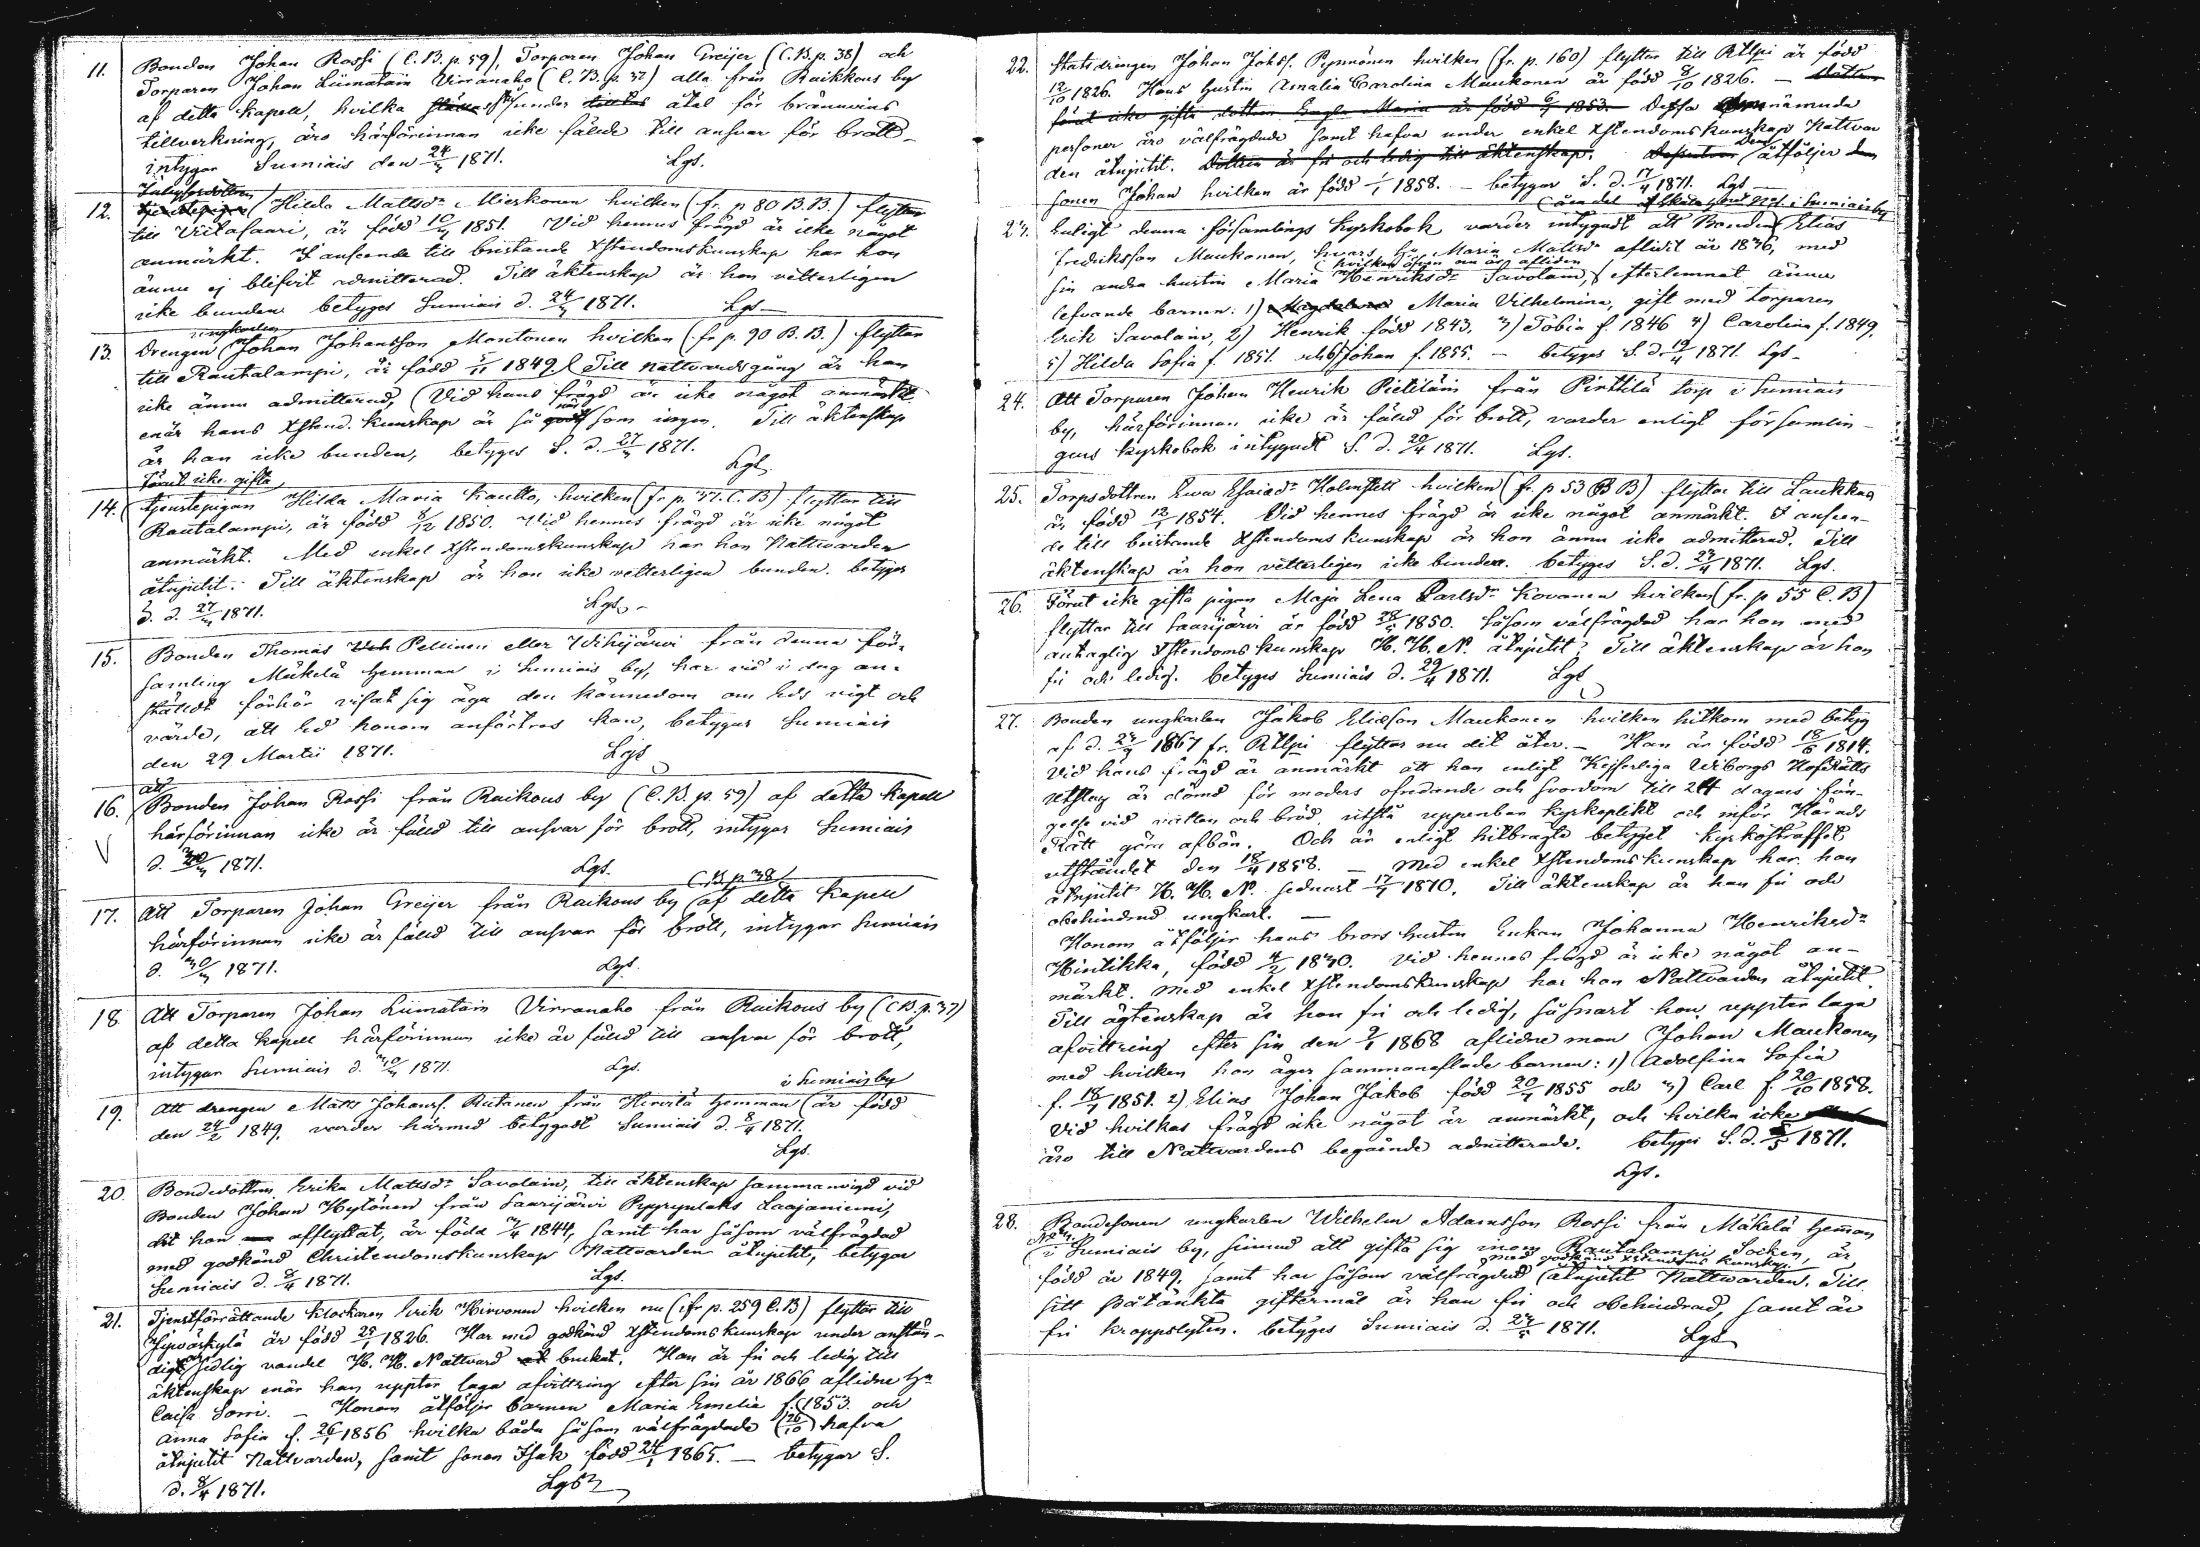 11. Bonden Johan Rossi (C.B. p. 59), Torparen Johan Greijer (C.B. p. 38) och
Torparen Johan Liimatain Virranaho (C.B. p. 37) alla från Raikkous by
af detta Kapell, hvilka under åtal för bränvins
tillverkning, äro härförinnan icke fälde till ansvar för brott
intygar Sumiais den 24/3 1871. Lgs.
12. Hilda Mattsdr Mieskonen hvilken (fr. p 80 B.B.) flyttar
till Viitasaari, är född 10/3 1851. Vid hennes frägd är icke något
anmärkt. I anseende till bristande Xstendomskunskap har hon
ännu ej blifvit admitterad. Till äktenskap är hon vitterligen
icke bunden betyges Sumiais d. 24/3 1871. Lgs
ungkarlen
13. Drengen Johan Johansson Montonen hvilken (fr p. 90 B.B.) flyttar
till Rautalampi, är född 1849 Till nattvardsgång är han
icke ännu admitterad, (Vid hans frägd är icke något anmärkt
enär hans Xstend. kunskap är så som ingen. Till äktenskap
är han icke bunden, betyges S. d. 27/3 1871. Lgs.
förut icke gifta
14. tjenstepigan Hilda Maria Kautto, hvilken (fr p. 37. C.B) flyttar till
Rautalampi, är född 8/12 1850. Vid hennes frägd är icke något
anmärkt. Med enkel Xstendomskunskap har hon Nattvarden
åtnjutit. Till äktenskap är hon icke vetterligen bunden. betyges
S. d. 27/3 1871. Lgs.
15. Bonden Thomas Pellinen eller Vihijärvi från denna för-
samling Mäkelä hemman i Sumiais by, har vid i dag an-
stäldt förhör visat sig äga den kännedom om Eds vigt och
värde, att Ed honom anförtros kan, betygar Sumiais
den 29 Martii 1871. Lgs
Att
16. Bonden Johan Rossi från Raikous by (C.B. p. 59) af detta Kapell
härförinnan icke är fälld till ansvar för brott, intygar Sumiais
d. 30/3 1871. Lgs.
(C.B. p. 38)
17. Att Torparen Johan Greijer från Raikous by af detta Kapell
härförinnan icke är fälld till ansvar för brott, intygar Sumiais
d. 30/3 1871. Lgs.
18. Att Torparen Johan Liimatain Virranaho från Raikous by (C.B. p. 37)
af detta Kapell härförinnan icke är fälld till ansvar för brott,
intygar Sumiais d. 30/3 1871. Lgs.
i Sumiais by
19. Att drengen Matts Johanss. Rutanen från Hirvilä hemman är född
den 24/2 1849. varder härmed betygadt Sumiais d. 8/4 1871.
Lgs.
20. Bondedottren Erika Mattsdr Savolain, till äktenskap sammanvigd vid
Bonden Johan Hytönen från Saarijärvi Pyyrynlaks Laajaniemi,
dit hon afflyttat, är född 3/4 1844, samt har såsom välfrägdad
med godkänd Christendomskunskap Nattvarden åtnjutit, betygar
Sumiais d. 8/4 1871. Lgs.
21. Tjenstförrättande klockaren Erik Hirvonen hvilken nu (fr p. 259 C.B) flyttar till
Jywäskylä är född 25/1 1826. Har med godkänd Xstendomskunskap under anstän-
digt sedlig vandel H. H. Nattvard brukat. Han är fri och ledig till
äktenskap enär han uppter laga afvittring efter sin år 1866 aflidne hu
Caisa Sorri. – Honom åtföljer barnen Maria Emelia f. 1853. och
Anna Sofia f. 26/1 1856 hvilka båda såsom välfrägdade hafva
åtnjutit Nattvarden, samt sonen Isak född 24/1 1865. – betygar S.
d. 8/4 1871. Lgs
22. Statsdrengen Johan Johss. Pynnönen hvilken (fr. p. 160) flyttar till Rtlpi är född
12/10 1826. Hans hustru Amalia Carolina Maukonen är född 8/10 1826. –
förut icke gifta dottren Maria är född 1853. Dessa nämnda
personer äro välfrägdade samt hafva under enkel Xstendomskunskap Nattvar
den åtnjutit. Dottren är fri och ledig till äktenskap. Dem åtföljer
sonen Johan hvilken är född 1/1 1858. – betygar S. d. 17/4 1871. Lgs
23. Enligt denna församlings kyrkobok varder intygadt att Bonden Elias
Fredriksson Maukonen, hvars Maria Mattsdr aflidit år 1836, med
hvilken äfven nu är afliden
sin andra hustru Maria Henriksdr Savolain, efterlemnat ännu
lefvande barnen: 1) Maria Vilhelmina, gift med torparen
Erik Savolain, 2) Henrik född 1843, 3) Tobia f 1846 4) Carolina f. 1849,
5) Hilda Sofia f 1851. och 6) Johan f. 1855. – betyges S. d. 19/4 1871. Lgs
24. Att Torparen Johan Henrik Pietiläin från Pirttilä torp i Sumiais
by, härförinnan icke är fälld för brott, varder enligt församlin-
gens kyrkobok intygadt S. d. 20/4 1871. Lgs.
25. Torpsdottren Ewa Esaiædr Holmstell hvilken (fr. p 53 B B) flyttar till Laukkas
är född 12/1 1854. Vid hennes frägd är icke något anmärkt. I anseen-
de till bristande Xstendoms kunskap är hon ännu icke admitterad. Till
äktenskap är hon vetterligen icke bunden. betyges S. d. 23/4 1871. Lgs.
26. Förut icke gifta pigan Maja Lena Carlsdr Kovanen hvilken (fr. p 55 C.B)
flyttar till Saarijärvi är född 28/5 1850. Såsom välfrägdad har hon med
antaglig Xstendoms kunskap H. H. N. åtnjutit. Till äktenskap är hon
fri och ledig. betyges Sumiais d. 29/4 1871. Lgs
27. Bonden ungkarlen Jakob Eliasson Maukonen hvilken hitkom med betyg
af d. 1867 fr. Rtlpi flyttar nu dit åter. – Han är född 18/6 1814.
Vid hans frägd är anmärkt att han enligt Kejserliga Wiborgs Hofrätts
Utslag är dömd för moders ofredande och svordom till 24 dagars fän-
gelse vid vatten och bröd, utstå uppenbar kyrkoplikt och inför Härads
Rätt göra afbön. Och är enligt hitbragte betyget kyrkostraffet
utståndet den 18/4 1858. – Med enkel Xstendomskunskap har han
åtnjutit H. H. N. sednast 17/7 1870. Till äktenskap är han fri och
obehindrad ungkarl. –
Honom åtföljer hans brors hustru Enkan Johanna Henriksdr
Hintikka, född 4/2 1830. Vid hennes frägd är icke något an-
märkt. Med enkel Xstendomskunskap har hon Nattvarden åtnjutit.
Till ägtenskap är hon fri och ledig, såsnart hon uppter laga
afvittring efter sin den 9/1 1868 aflidne man Johan Maukonen
med hvilken hon äger sammanaflade barnen: 1) Adolfina Sofia
f. 18/7 1851. 2) Elias Johan Jakob född 20/7 1855 och 3) Carl f. 20/10 1858.
Vid hvilkas frägd icke något är anmärkt, och hvilka icke
äro till Nattvardens begående admitterade. betyges S. d. 1871.
Lgs.
28. Bondesonen ungkarlen Wilhelm Adamsson Rossi från Mäkelä heman
i Sumiais by, sinnad att gifta sig inom Rautalampi Socken, är
med godkänd Xstendoms kunskap
född år 1849, samt har såsom välfrägdad åtnjutit Nattvarden. Till
sitt påtänkta giftermål är han fri och obehindrad, samt är
fri kroppslyten. betyges Sumiais d. 1871. Lgs